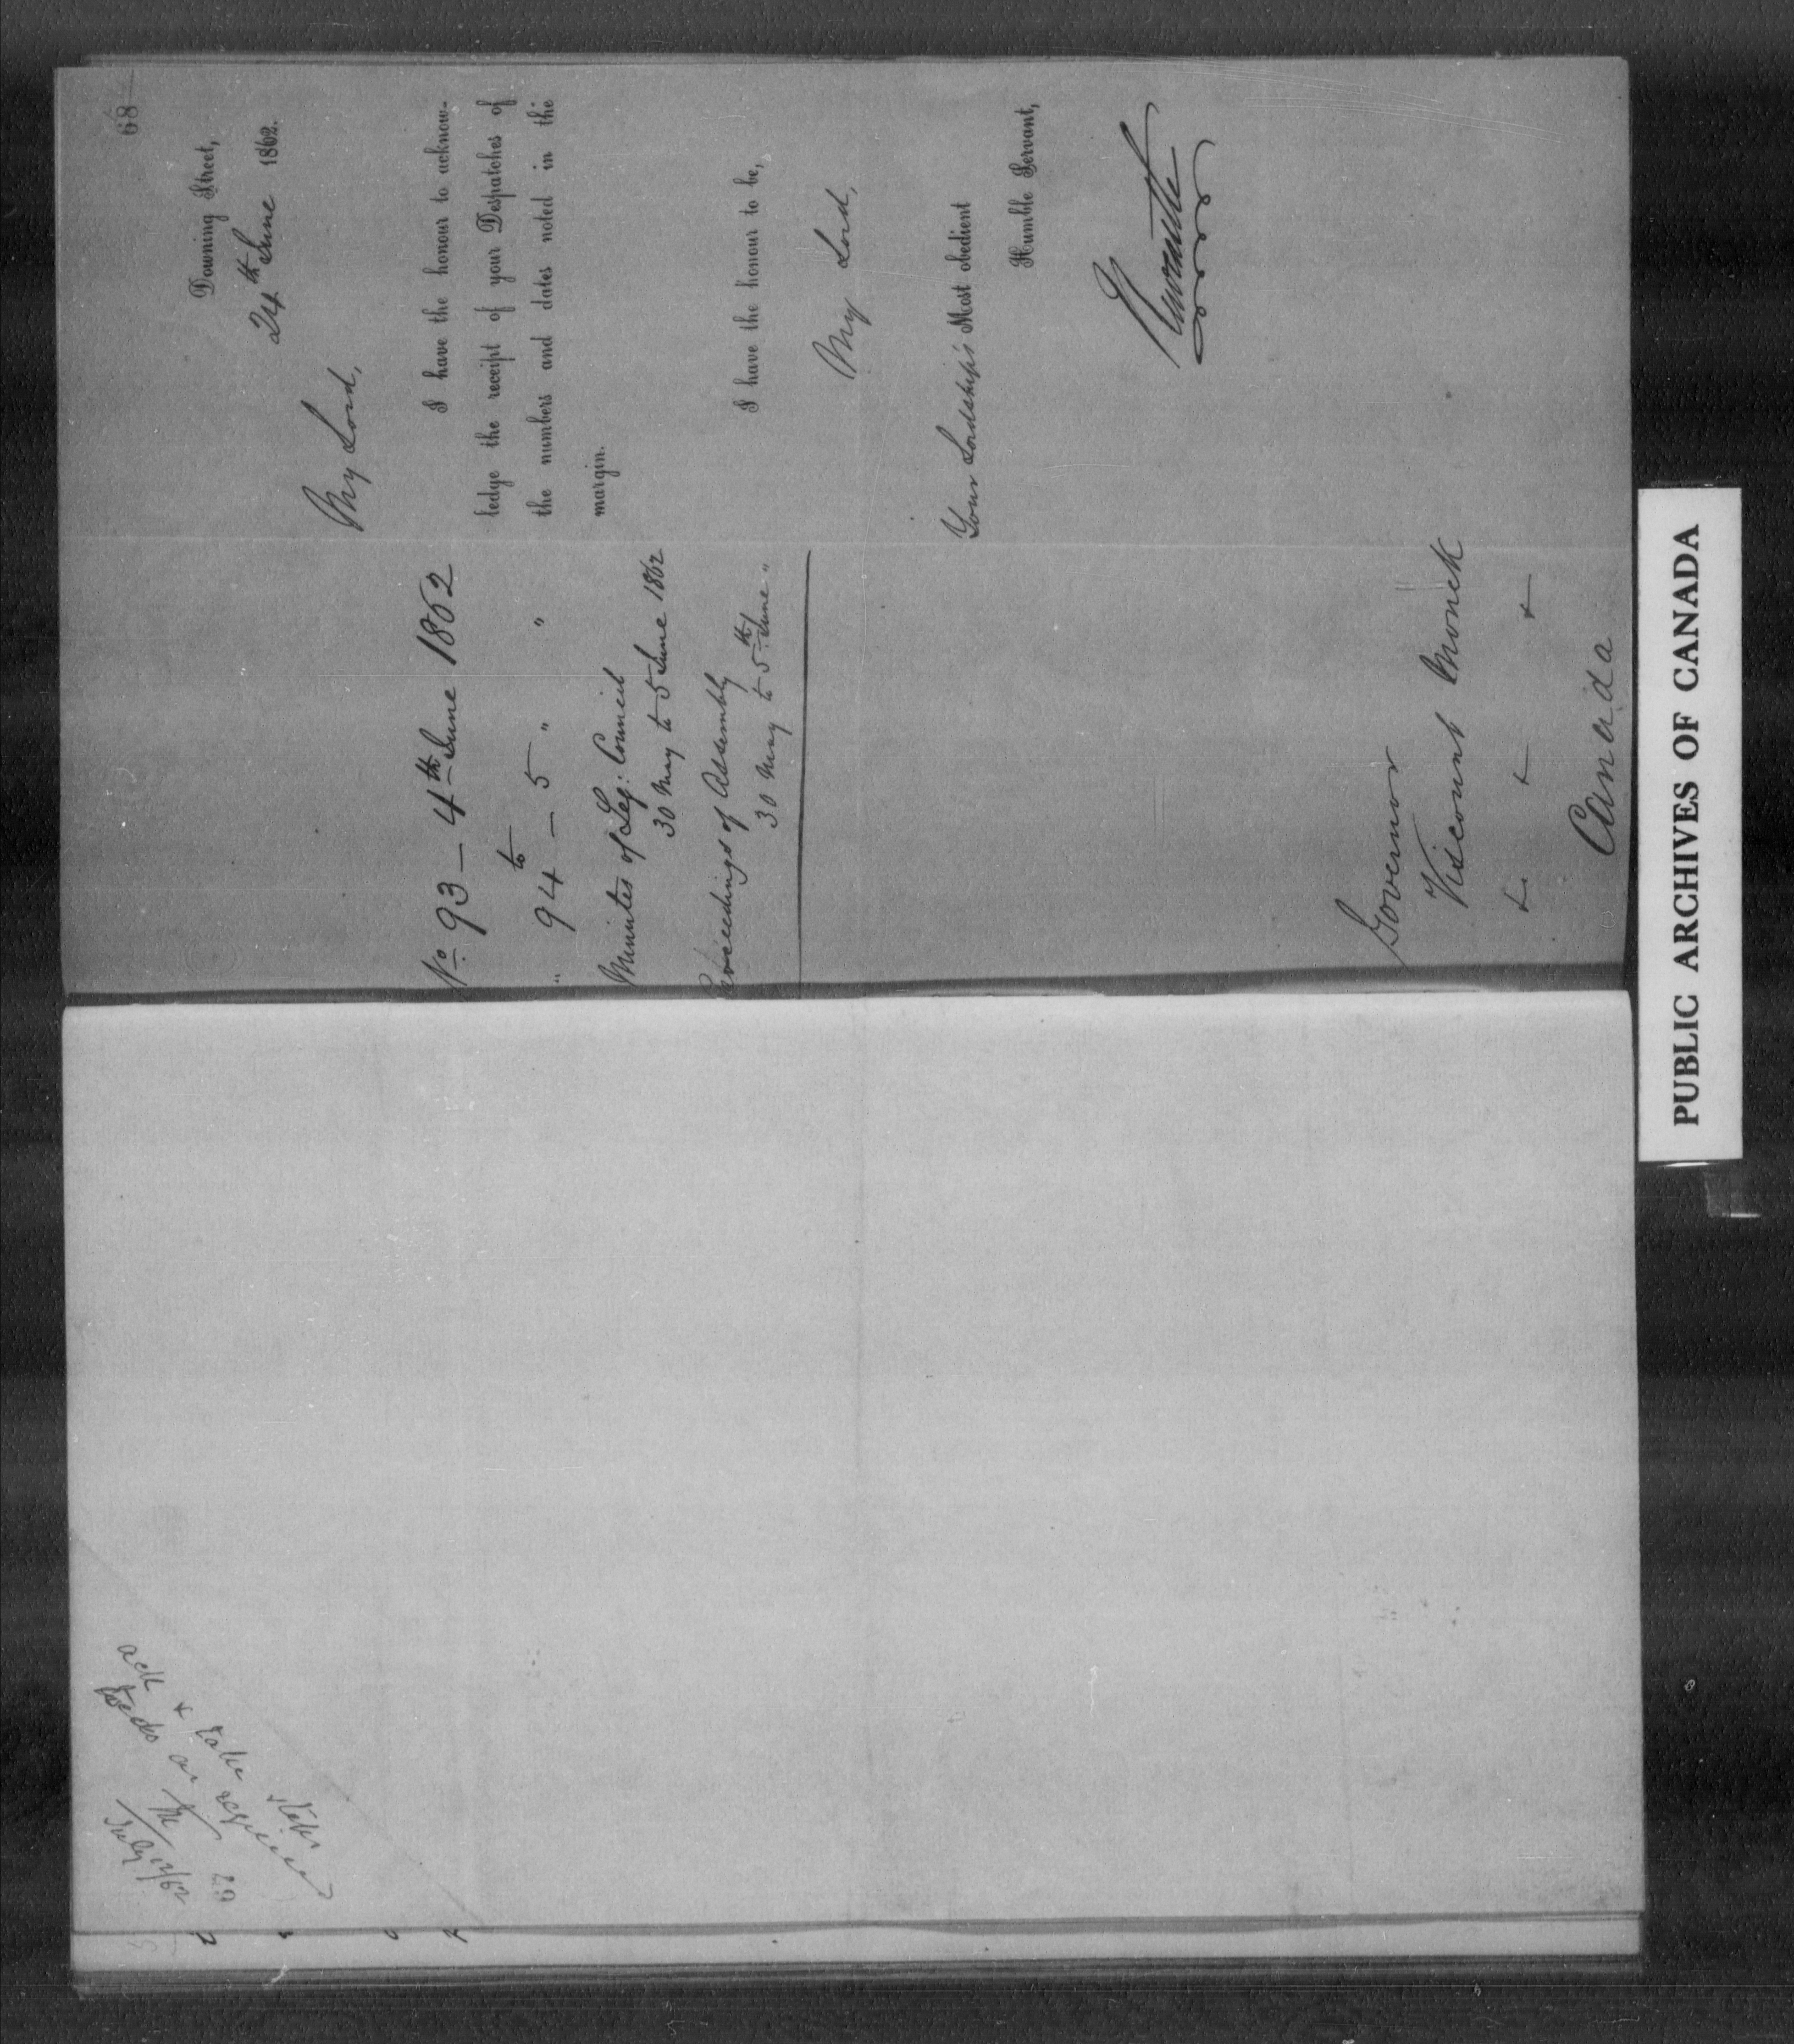 68
Downing Street,
24th June 1862.
My Lord,
I have the honour to acknow-
ledge the receipt of your Despatches of
the numbers and dates noted in the
margin.
No. 93 — 4th June 1862
to
" 94 — 5 " "
Minutes of Leg: Council
30 May to 5 June 1862
Proceedings of Assembly
30 May to 5th June "
I have the honour to be,
My Lord,
Your Lordship's Most obedient
Humble Servant,
Newcastle
Governor
Viscount Monck
&. & &
Canada
ack
& take
July
67
PUBLIC ARCHIVES OF CANADA